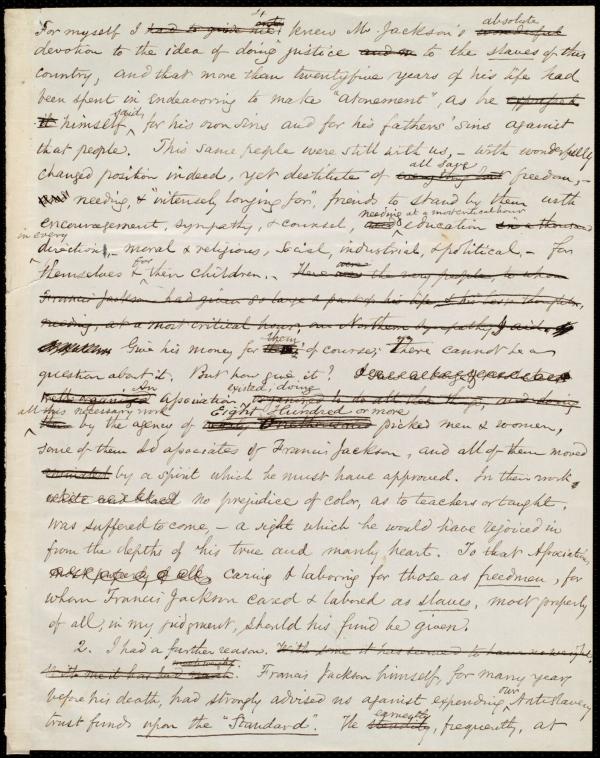 4
For myself I knew Mr. Jackson's absolute
devotion to the idea of doing justice to the slaves of this
country, and that more than twentyfive years of his life had
been spent in endeavoring to make "atonement", as he
himself said, for his own sins and for his fathers' sins against
that people. This same people were still with us, – with wonderfully
changed position indeed, yet destitute of all save freedom, –
needing, & "intensely longing for", friends to stand by them with
encouragement, sympathy, & counsel, needing at a most critical hour education
in every direction, – moral & religious, social, industrial, & political, – for
themselves & for their children. –
Francis Jackson had given so large a part of his life
needing, at a most critical hour, our Northern sympathy,
Give his money for them, of course; There cannot be a
question about it. But how give it?
An Association existed, doing
all this necessary work by the agency of Eight Hundred or more picked men & women,
some of them old associates of Francis Jackson, and all of them moved
by a spirit which he must have approved. In their work,
no prejudice of color, as to teachers or taught,
was suffered to come, – a sight which he would have rejoiced in
from the depths of his true and manly heart. To that Association,
caring & laboring for those as freedmen, for
whom Francis Jackson cared & labored as slaves, most properly
of all, in my judgment, should his fund be given.
2. I had a further reason.
Francis Jackson himself, for many years
before his death, had strongly advised us against expending our Antislavery
trust funds upon the "Standard". He earnestly, frequently, at